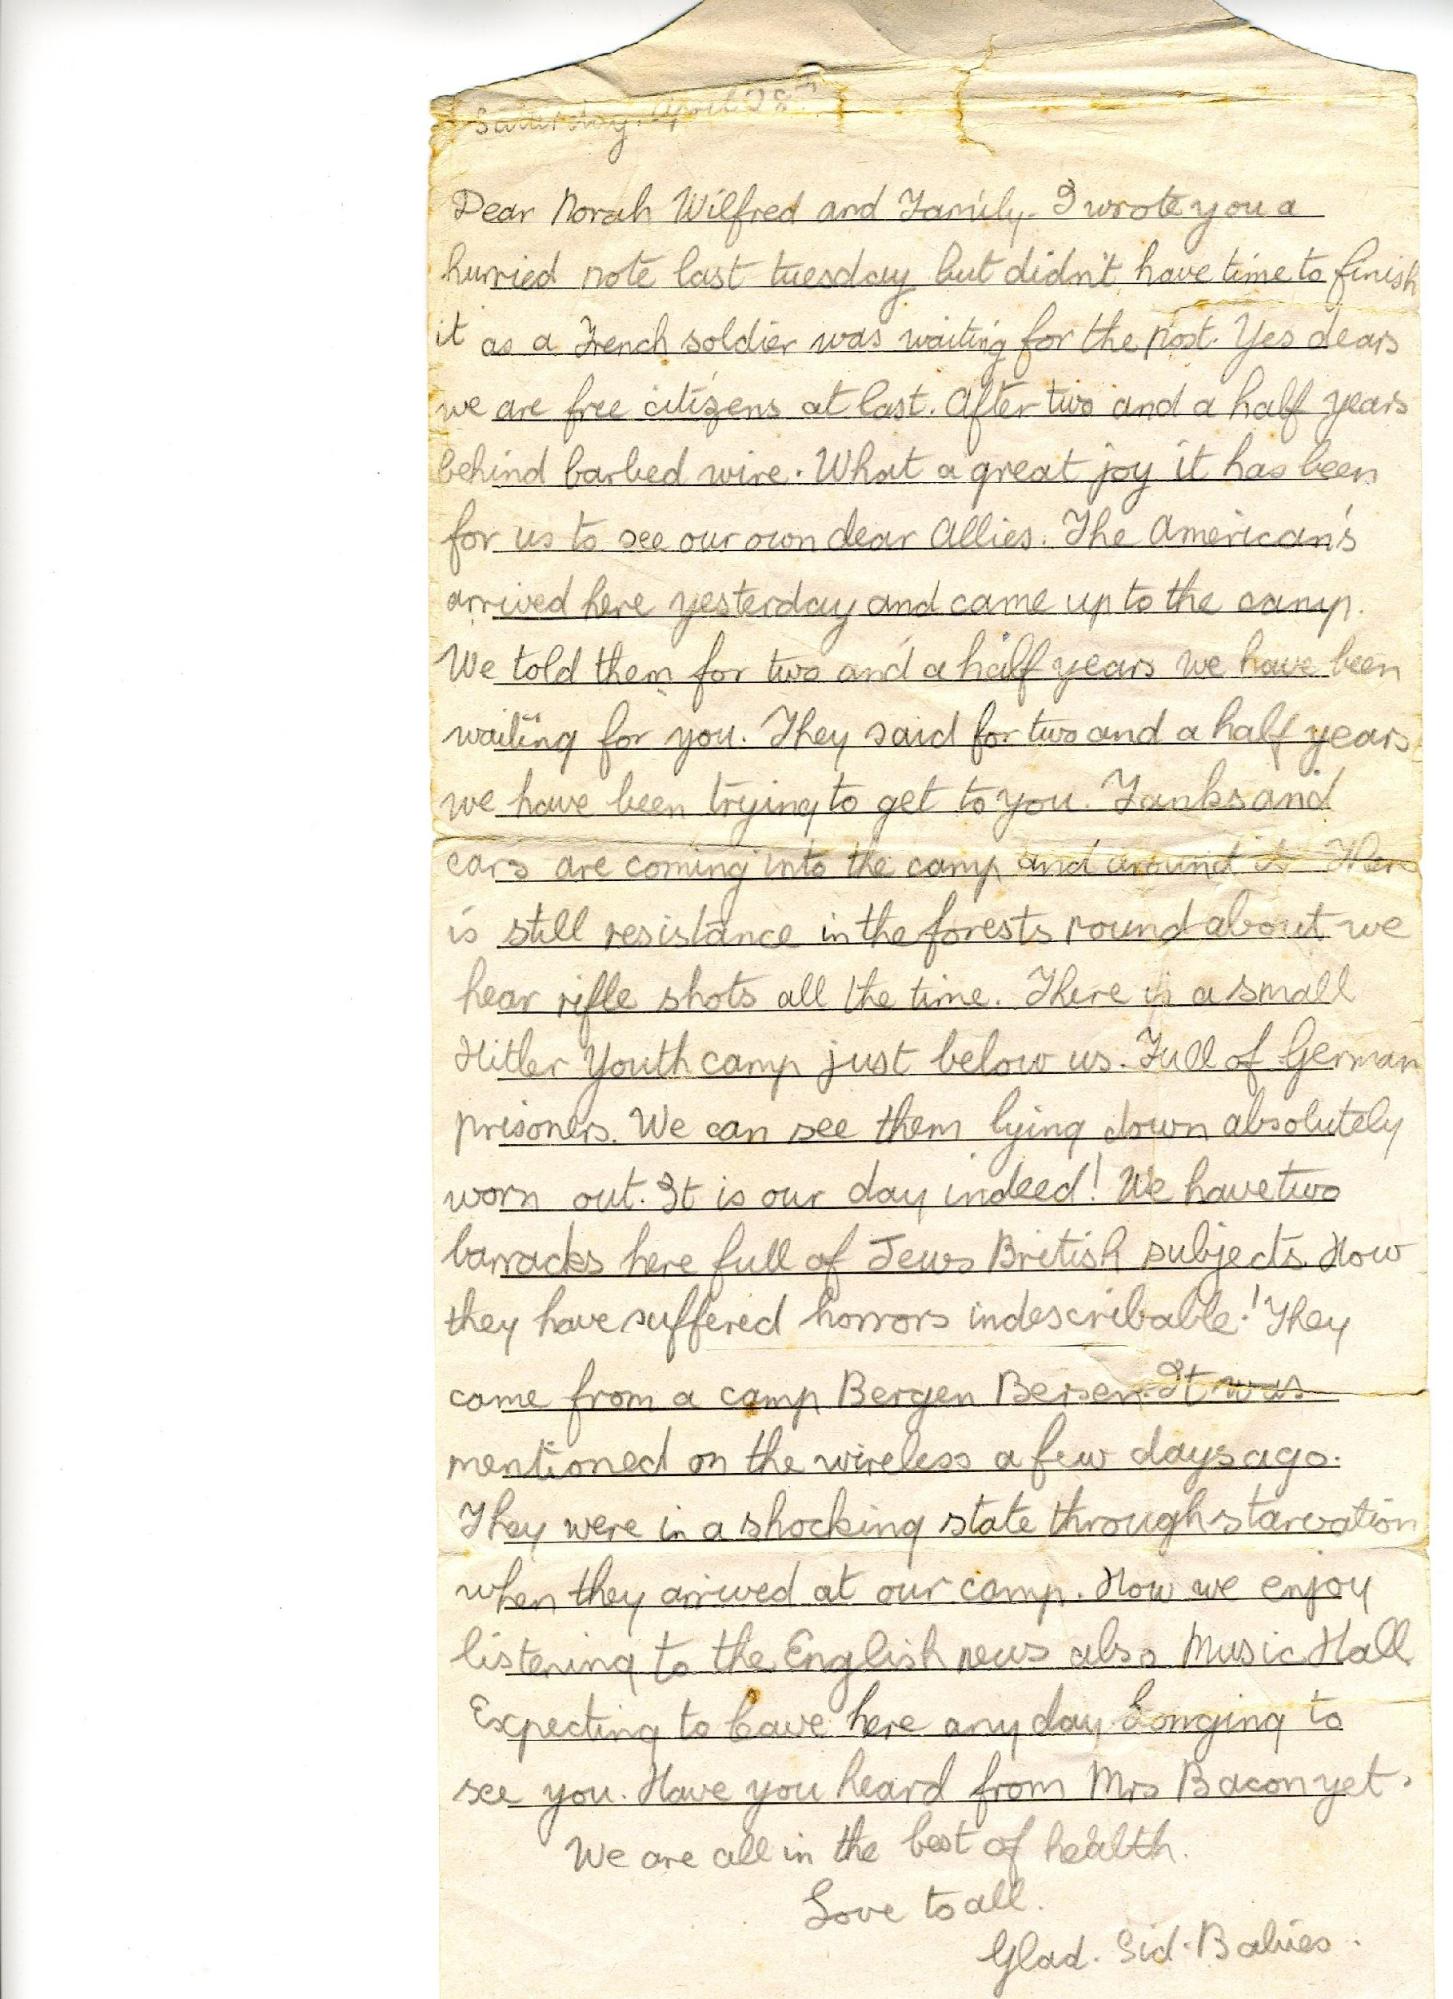 Saturday. April 28th
Dear Norah Wilfred and Family. I wrote you a
hurried note last tuesday but didn't have time to finish
it as a French soldier was waiting for the post. Yes dears
we are free citizens at last. After two and a half years
behind barbed wire. What a great joy it has been
for us to see our own dear Allies. The American's
arrived here yesterday and came up to the camp.
We told them for two and a half years we have been
waiting for you. They said for two and a half years
we have been trying to get to you. Tanks and
cars are coming into the camp and around it There
is still resistance in the forests round about we
hear rifle shots all the time. There is a small
Hitler Youth camp just below us. Full of German
prisoners. We can see them lying down absolutely
worn out. It is our day indeed! We have two
barracks here full of Jews British subjects. How
they have suffered horrors indescribable! They
came from a camp Bergen Bersen. It was
mentioned on the wireless a few days ago.
They were in a shocking state through starvation
when they arrived at our camp. How we enjoy
listening to the English news also Music Hall
Expecting to leave here any day. Longing to
see you. Have you heard from Mrs Bacon yet.
We are all in the best of health.
Love to all.
Glad. Sid. Babies.